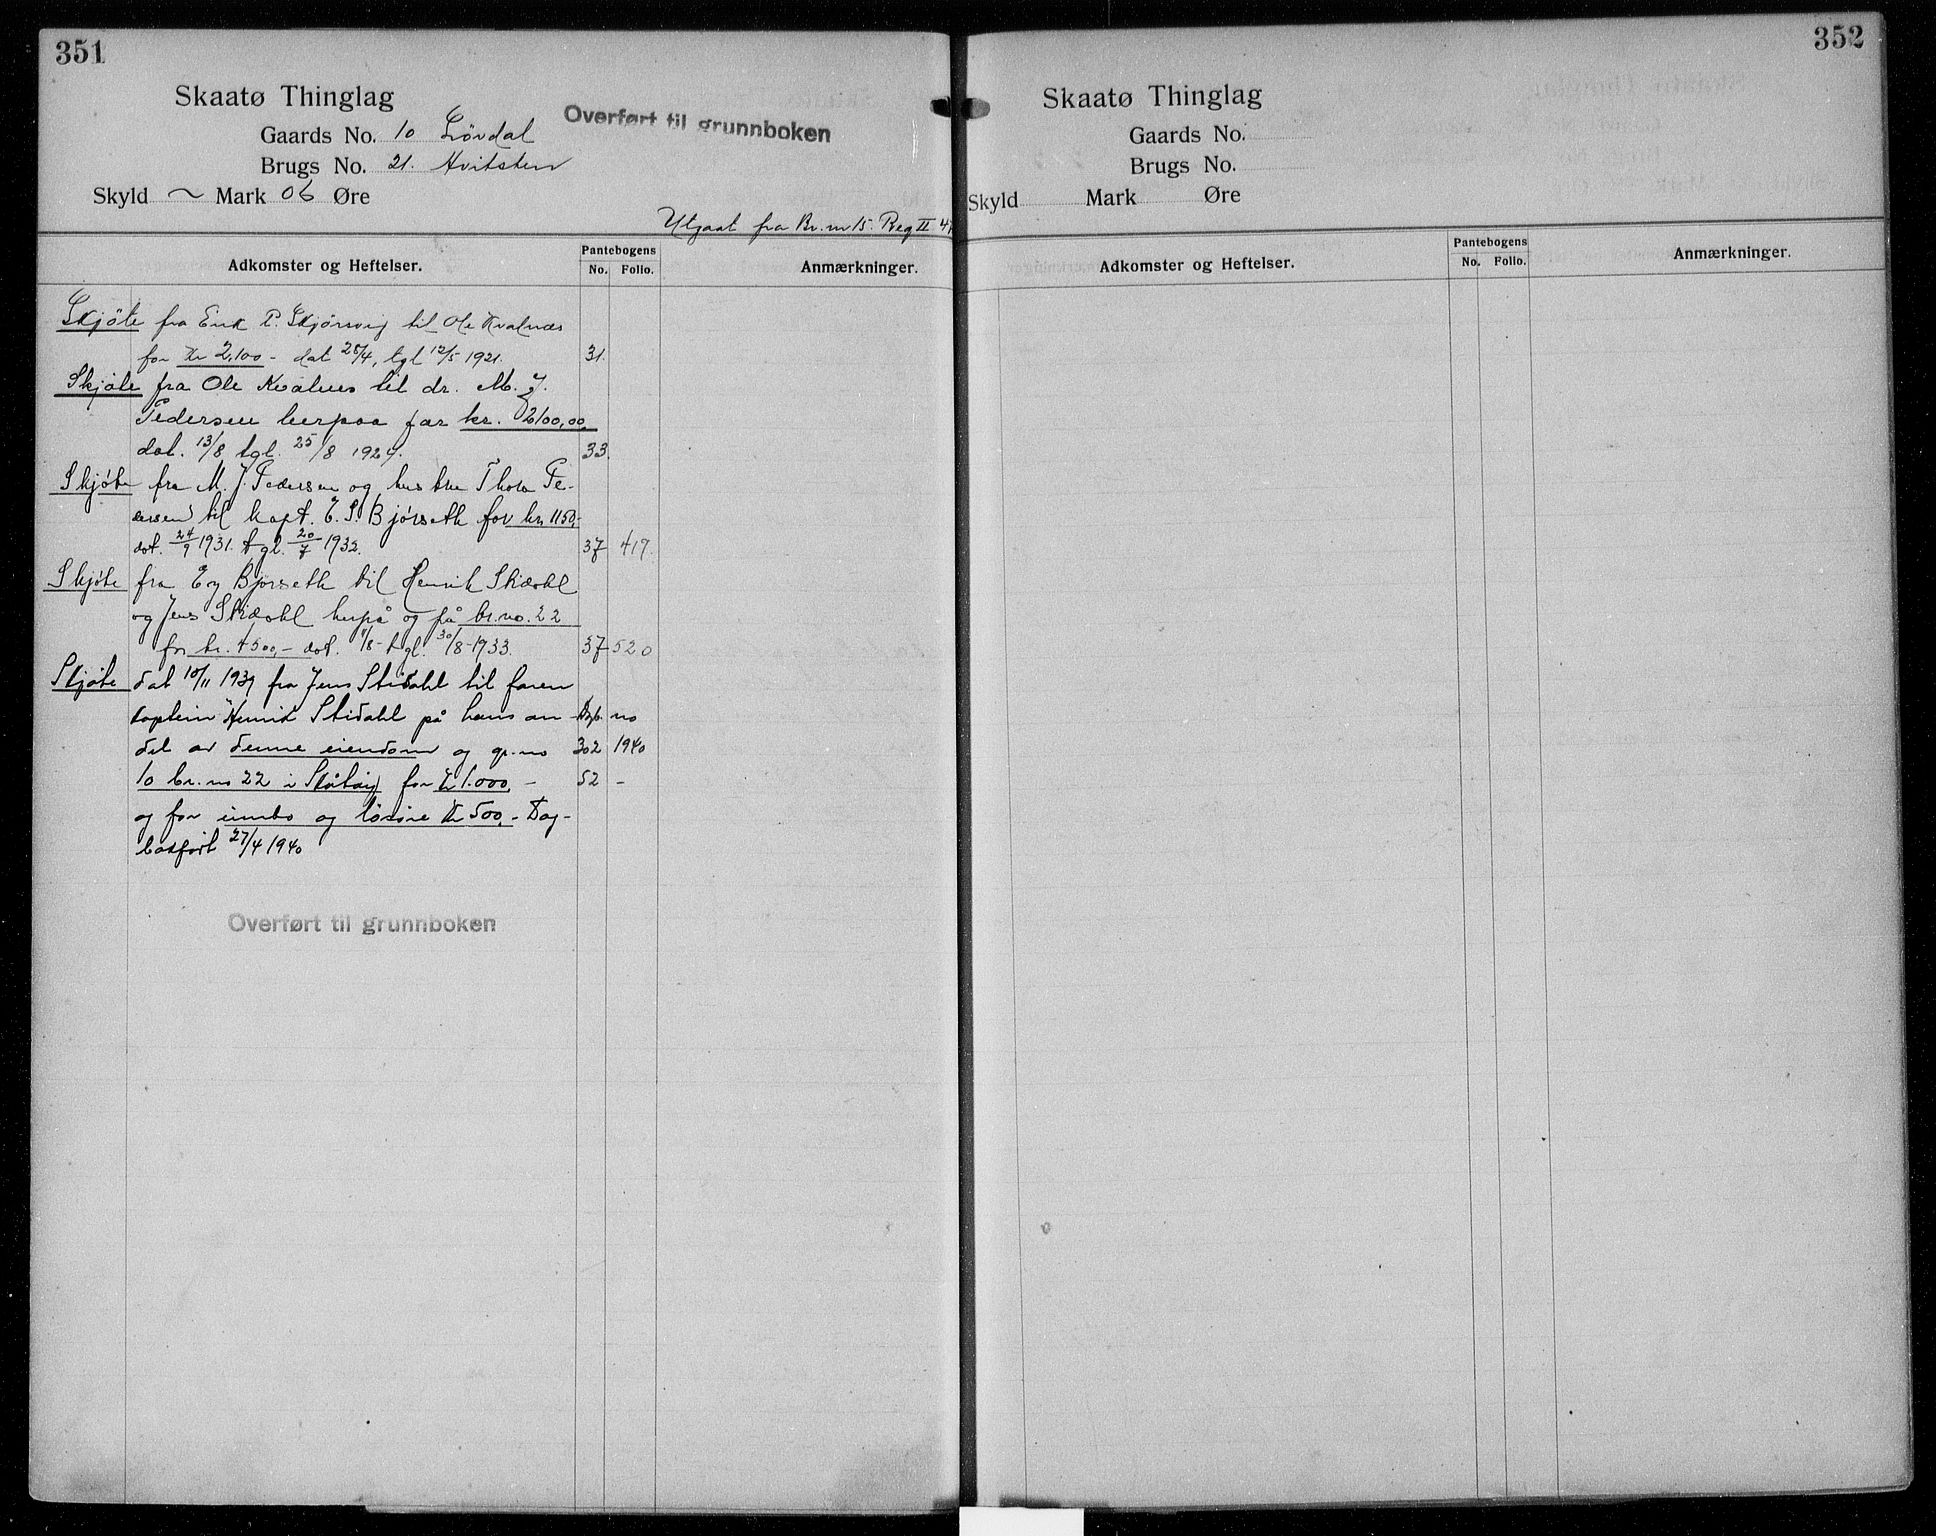 351
Skaatø Thinglag
Overført til grunnboken
Gaards No. 10 Lövdal
Brugs No. 21. Hvitsten
Skyld ~ Mark 06 Øre
Utgaat fra Br.nr 15. Reg II 4
Adkomster og Heftelser.
Pantebogens
No. Folio.
Anmærkninger.
Skjöte fra Erik P. Skjörsvig til Ole Kvalnæs
for Kr 2,100 - dat 28/4, tgl 12/5 1921. 31.
Skjöte fra Ole Kvalnes til dr. M. J.
Pedersen herpaa for kr. 2100,00,
dat. 13/8 tgl. 25/8 1924. 33.
Skjöte fra M. J. Pedersen og hustru Thora Pe-
dersen til kapt. E. S. Bjørseth for kr. 1150,-
dat. 24/9 1931. tgl. 20/7 1932. 37 419.
Skjöte fra Bjørseth til Henrik Stidahl
og Jens Stidahl herpå og på br.no. 22
for kr. 4500,- dat. 1/8 - tgl. 30/8-1933. 37 520
Skjöte dat 10/11 1939 fra Jens Stidahl til faren
kaptein Henrik Stidahl på hans an- Dagb. no
del av denne eiendom og gr.no 302 1940
10 br.no 22 i Skåtøy for kr 1.000,- 52 -
og for innbo og løsøre Kr 500,- Dag-
bokført 27/4 1940
Overført til grunnboken
352
Skaatø Thinglag
Gaards No.
Brugs No.
Skyld Mark Øre
Adkomster og Heftelser.
Pantebogens
No. Folio.
Anmærkninger.